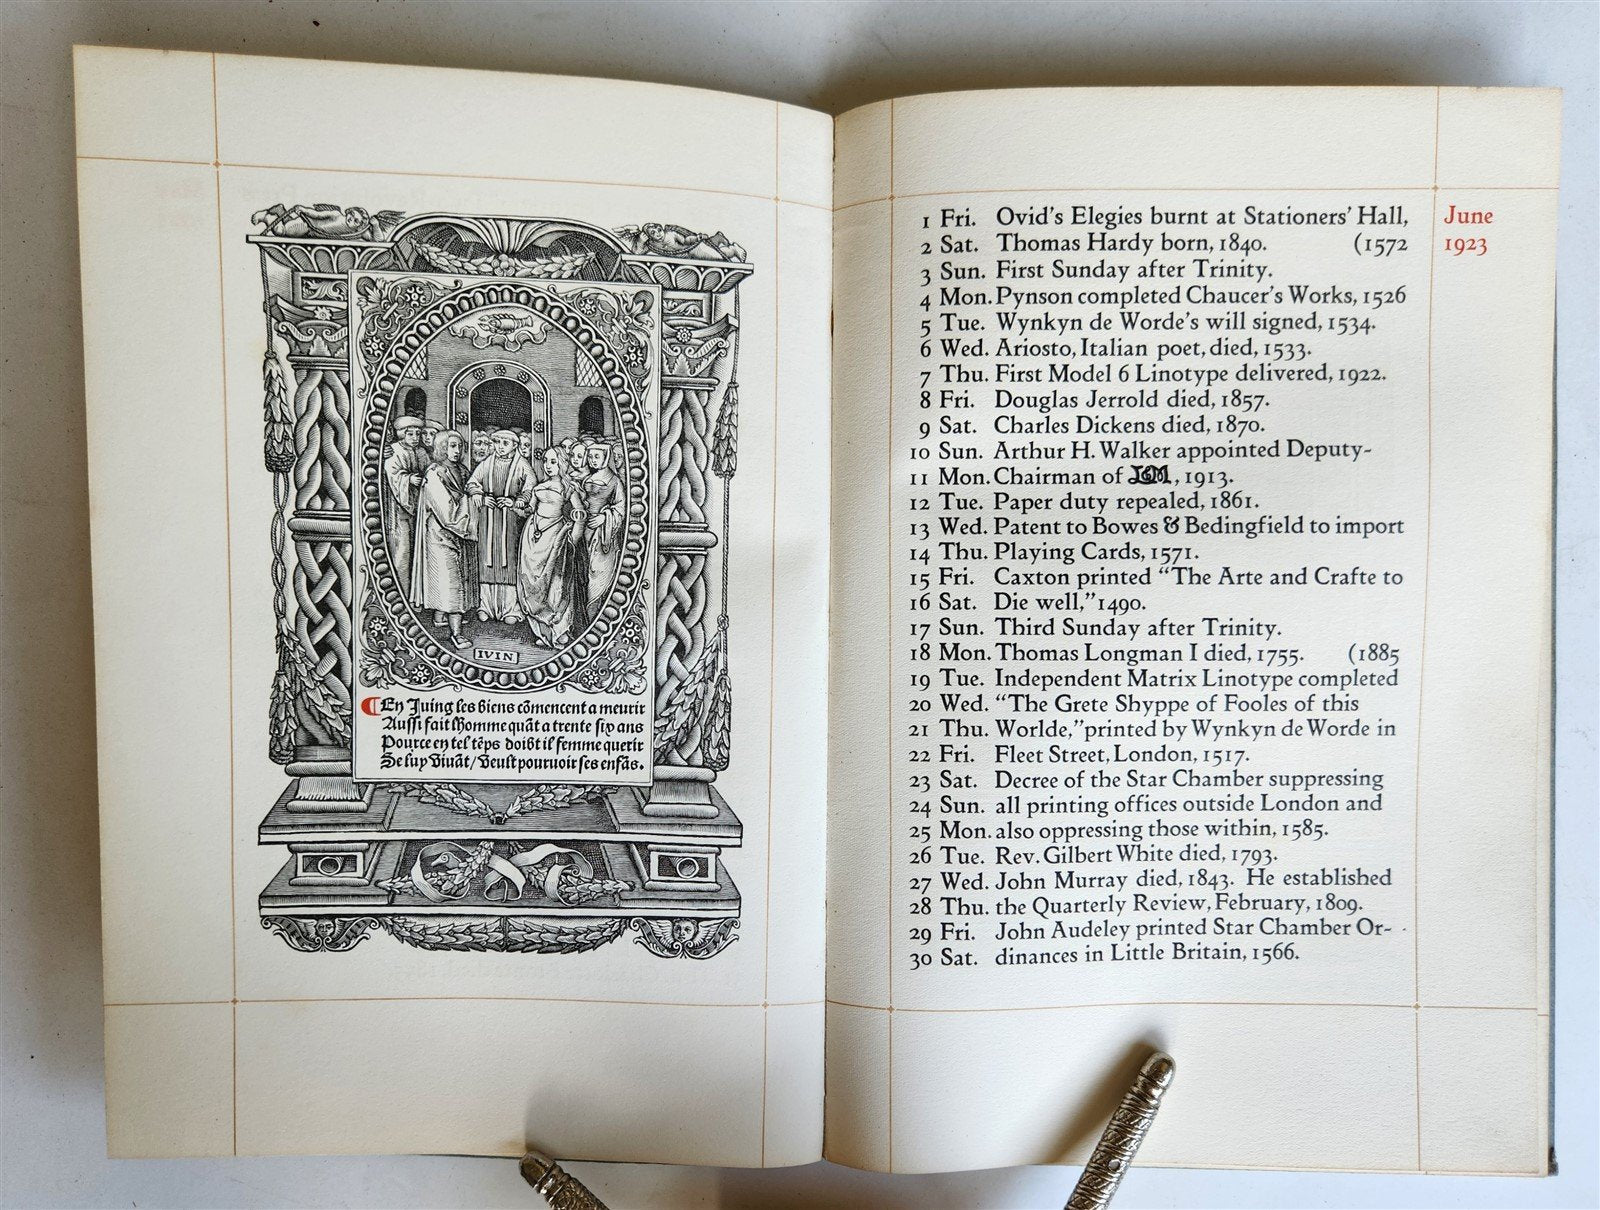 IVIN
¶ En Juing les biens cõmencent a meurir
Aussi fait lhomme quãt a trente six ans
Pource en tel tẽps doibt il femme querir
Se luy viuãt / veult pouruoir ses enfãs.
June
1923
1 Fri. Ovid's Elegies burnt at Stationers' Hall,
2 Sat. Thomas Hardy born, 1840. (1572
3 Sun. First Sunday after Trinity.
4 Mon. Pynson completed Chaucer's Works, 1526
5 Tue. Wynkyn de Worde's will signed, 1534.
6 Wed. Ariosto, Italian poet, died, 1533.
7 Thu. First Model 6 Linotype delivered, 1922.
8 Fri. Douglas Jerrold died, 1857.
9 Sat. Charles Dickens died, 1870.
10 Sun. Arthur H. Walker appointed Deputy-
11 Mon. Chairman of , 1913.
12 Tue. Paper duty repealed, 1861.
13 Wed. Patent to Bowes & Bedingfield to import
14 Thu. Playing Cards, 1571.
15 Fri. Caxton printed "The Arte and Crafte to
16 Sat. Die well," 1490.
17 Sun. Third Sunday after Trinity.
18 Mon. Thomas Longman I died, 1755. (1885
19 Tue. Independent Matrix Linotype completed
20 Wed. "The Grete Shyppe of Fooles of this
21 Thu. Worlde," printed by Wynkyn de Worde in
22 Fri. Fleet Street, London, 1517.
23 Sat. Decree of the Star Chamber suppressing
24 Sun. all printing offices outside London and
25 Mon. also oppressing those within, 1585.
26 Tue. Rev. Gilbert White died, 1793.
27 Wed. John Murray died, 1843. He established
28 Thu. the Quarterly Review, February, 1809.
29 Fri. John Audeley printed Star Chamber Or-
30 Sat. dinances in Little Britain, 1566.